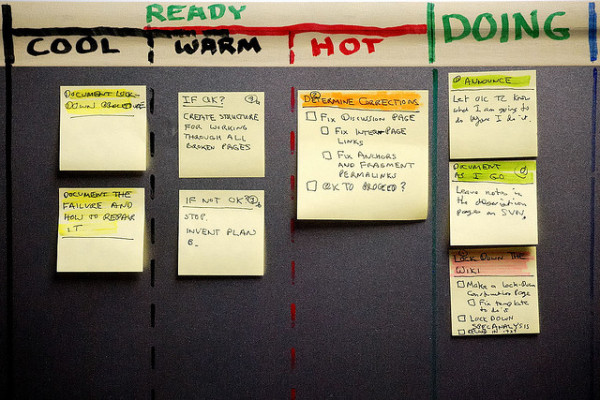 READY
COOL
WARM
HOT
DOING
DOCUMENT LOCK-
DOWN PROCEDURE
DOCUMENT THE
FAILURE AND
HOW TO REPAIR
IT
IF OK?
CREATE STRUCTURE
FOR WORKING
THROUGH ALL
BROKEN PAGES
IF NOT OK?
STOP.
INVENT PLAN
B.
DETERMINE CORRECTIONS
FIX DISCUSSION PAGE
FIX INTER-PAGE
LINKS
FIX ANCHORS
AND FRAGMENT
PERMALINKS
OK TO PROCEED?
ANNOUNCE
Let know
what I am going to
do before I do it.
DOCUMENT
AS I GO
Leave notes in
the
pages on SVN.
LOCK DOWN THE
WIKI
Make a Lock-Down
Page
Fix template
to do it
LOCK DOWN
SPEC ANALYSIS